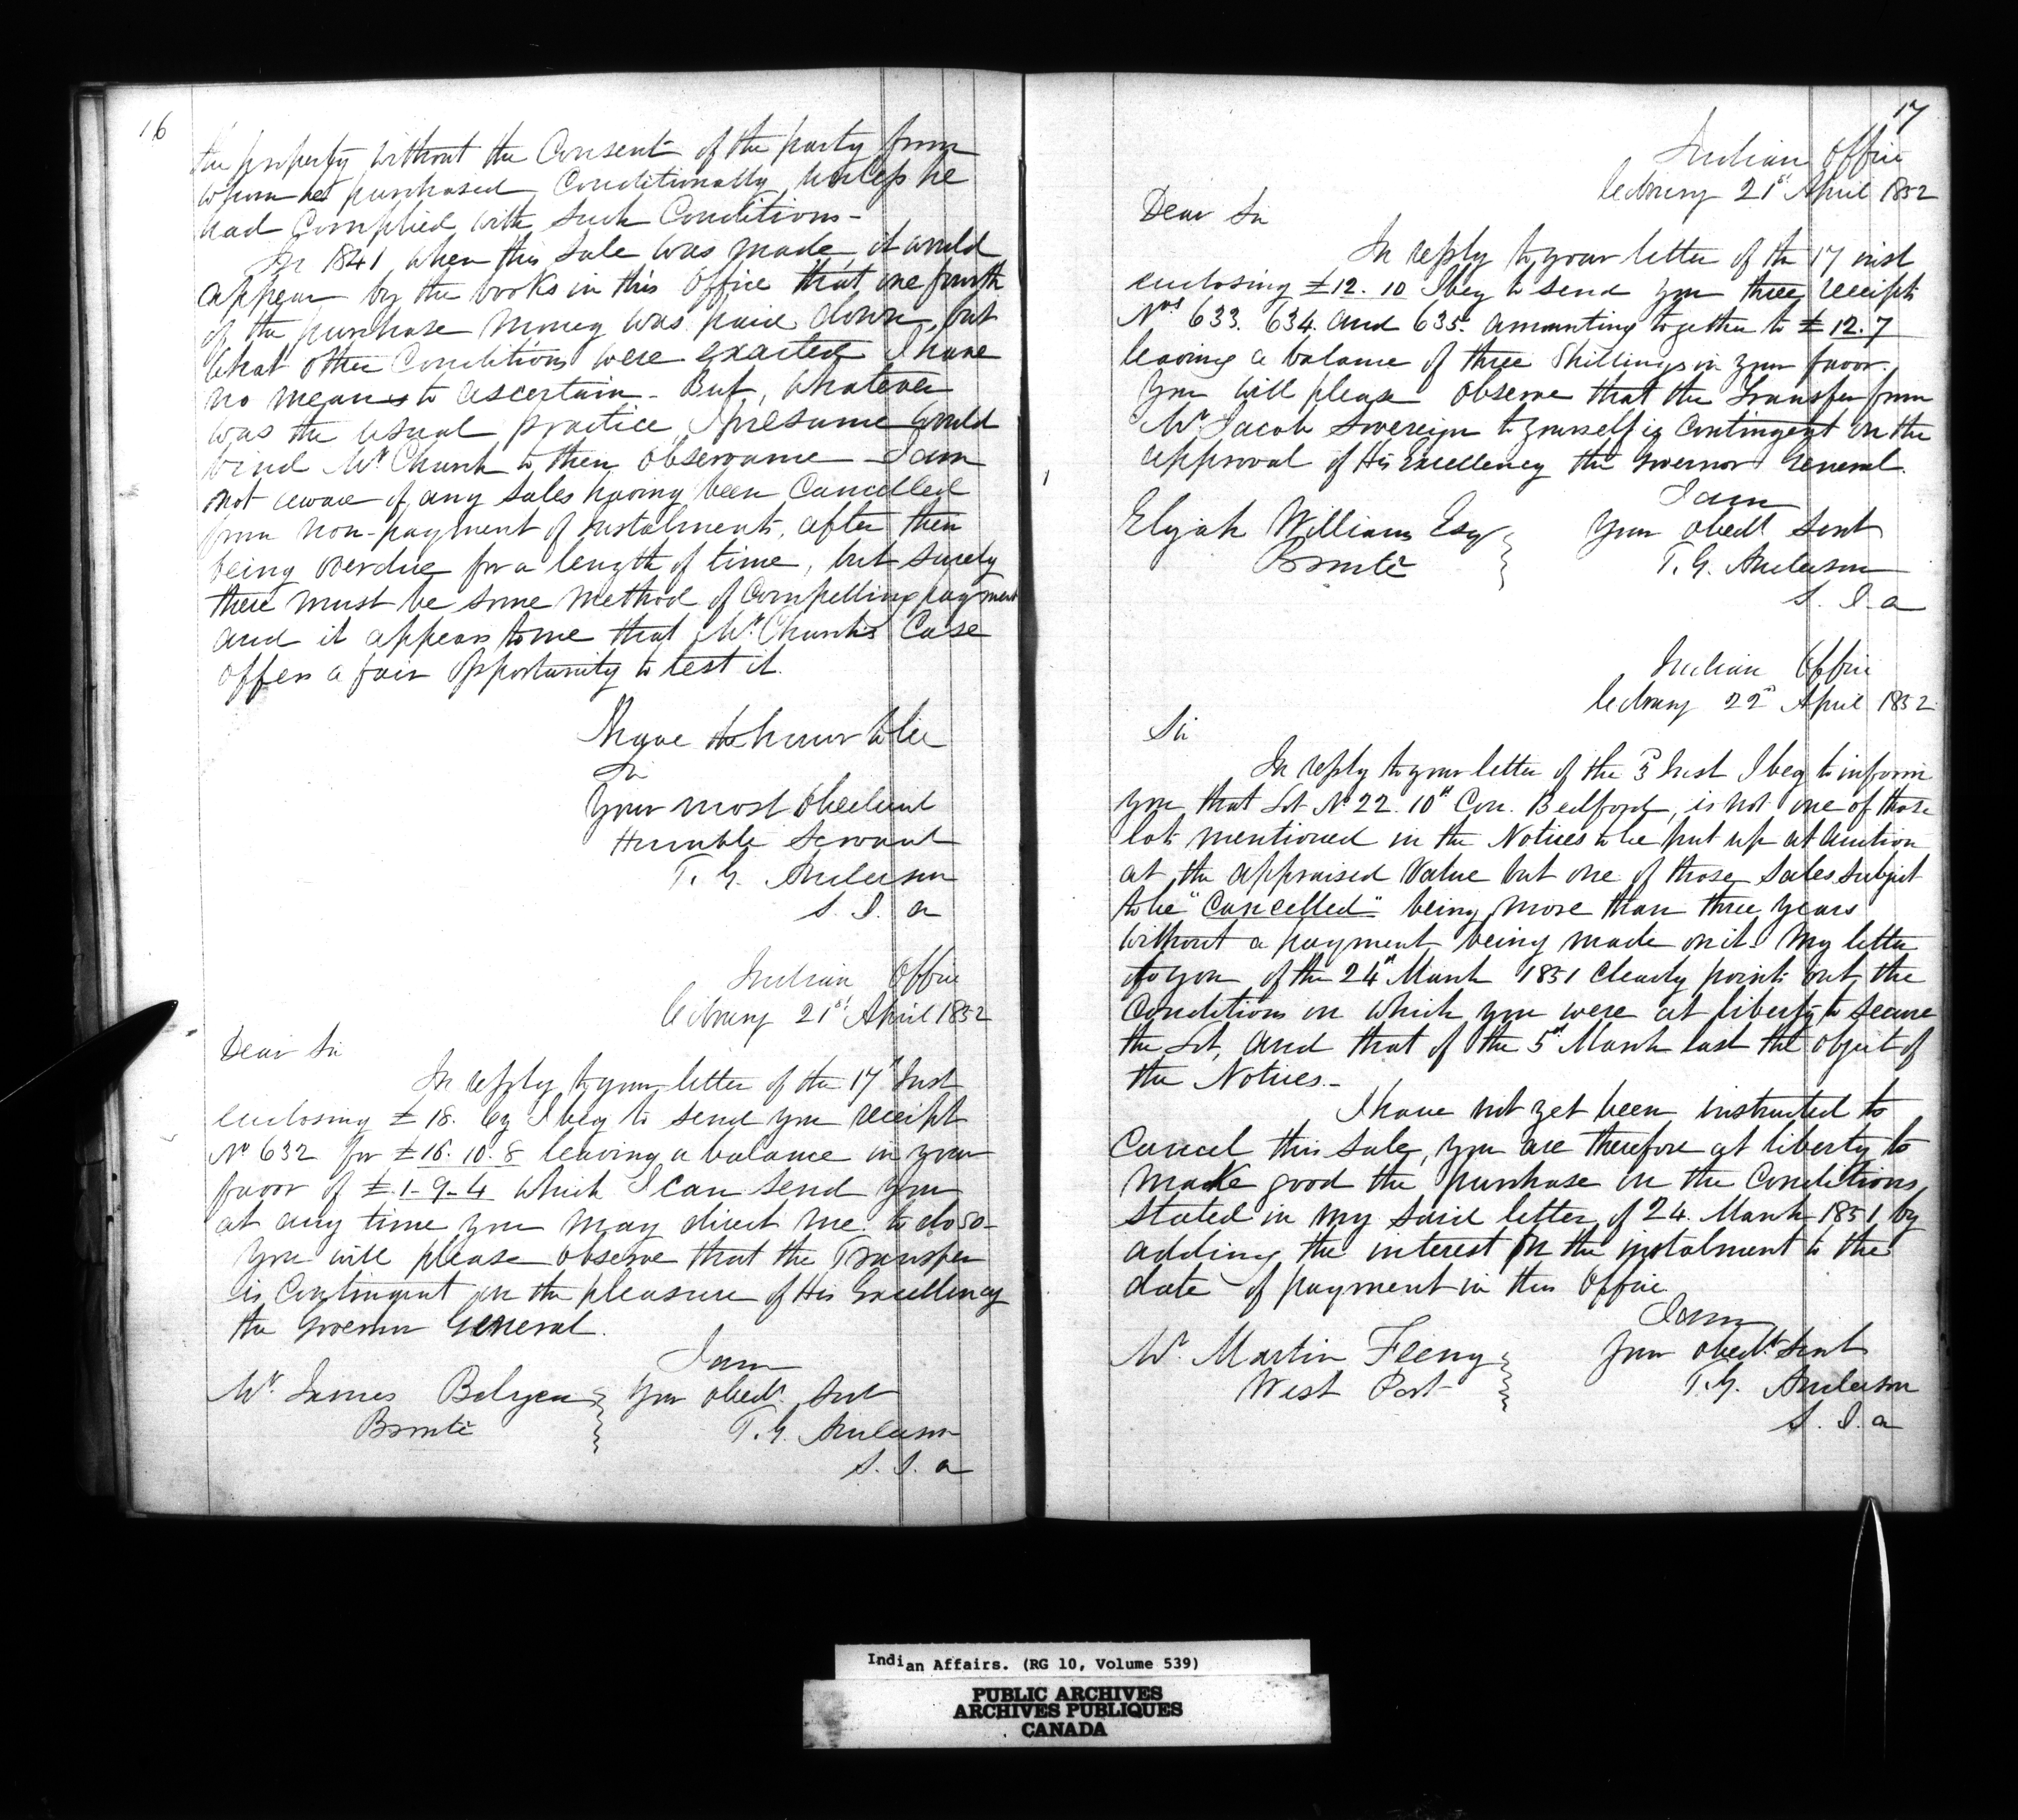 16
the property without the Consent of the party from
whom he purchased Conditionally, unless he
had Complied with such Conditions -
In 1841 when this Sale was made, it would
appear by the books in this Office that one fourth
of the purchase money was paid down, but
what other Conditions were exacted I have
no means to ascertain - But, whatever
was the usual practice I presume would
bind Mr Church to their observance - I am
not aware of any Sales having been Cancelled
from non-payment of instalments, after their
being overdue for a length of time, but surely
there must be some method of Compelling payment
and it appears to me that Mr. Church's Case
offers a fair opportunity to test it.
I have the honor to be
Sir
Your most obedient
Humble Servant
T. G. Anderson
S. I. A
Indian Office
Cobourg 21st April 1852
Dear Sir
In reply to your letter of the 17th Inst
enclosing £ 18. I beg to send you receipt
No 632 for £16. 10. 8 leaving a balance in your
favor of £.1-9-4 which I can send you
at any time you may direct me to do so -
You will please observe that the Transfer
is Contingent on the pleasure of His Excellency
the Governor General.
I am
Mr. James Your obedt. Svt
Bronte
T. G. Anderson
S. I. A
17
Indian Office
Cobourg 21st April 1852
Dear Sir
In reply to your letter of the 17 inst
enclosing £12. 10 I beg to send you three receipts
Nos 633. 634. and 635. amounting together to £ 12. 7
leaving a balance of three Shillings in your favor.
You will please observe that the Transfer from
Mr Jacob Sovereign to yourself is Contingent on the
approval of His Excellency the Governor General.
I am
Elijah Williams Esq Your obedt Servt
Bronte
T. G. Anderson
S. I. A
Indian Office
Cobourg 22nd April 1852
Sir
In reply to your letter of the 3d Inst I beg to inform
you that Lot No 22. 10th Con. Bedford, is not one of those
lots mentioned in the Notices to be put up at Auction
at the appraised value but one of those Sales subject
to be "Cancelled" being more than three years
without a payment being made on it. My letter
to you of the 24th March 1851 clearly points out the
Conditions on which you were at liberty to secure
the Lot, and that of the 5th March last the object of
the Notices. -
I have not yet been instructed to
Cancel this Sale, you are therefore at liberty to
make good the purchase on the Conditions
stated in my said letter of 24. March 1851 by
adding the interest on the instalment to the
date of payment in this Office
I am
Mr. Martin Your obedt. Servt
West Port
T. G. Anderson
S. I. A
Indian Affairs. (RG 10, Volume 539)
PUBLIC ARCHIVES
ARCHIVES PUBLIQUES
CANADA